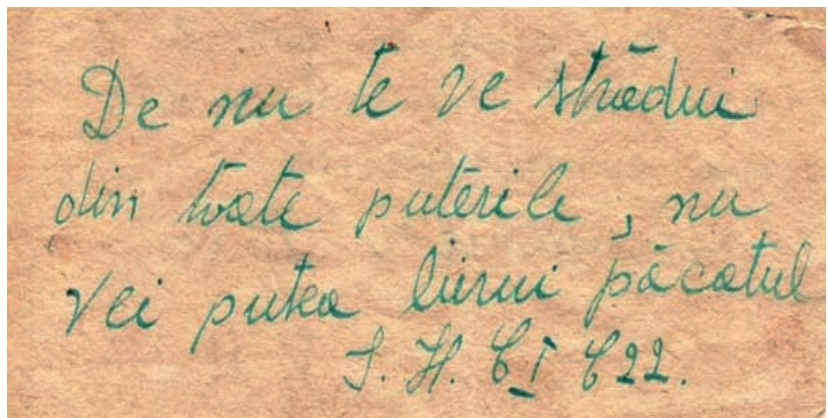 De nu te ve strădui
din toate puterile, nu
vei putea birui păcatul
S. H. C I C 22.